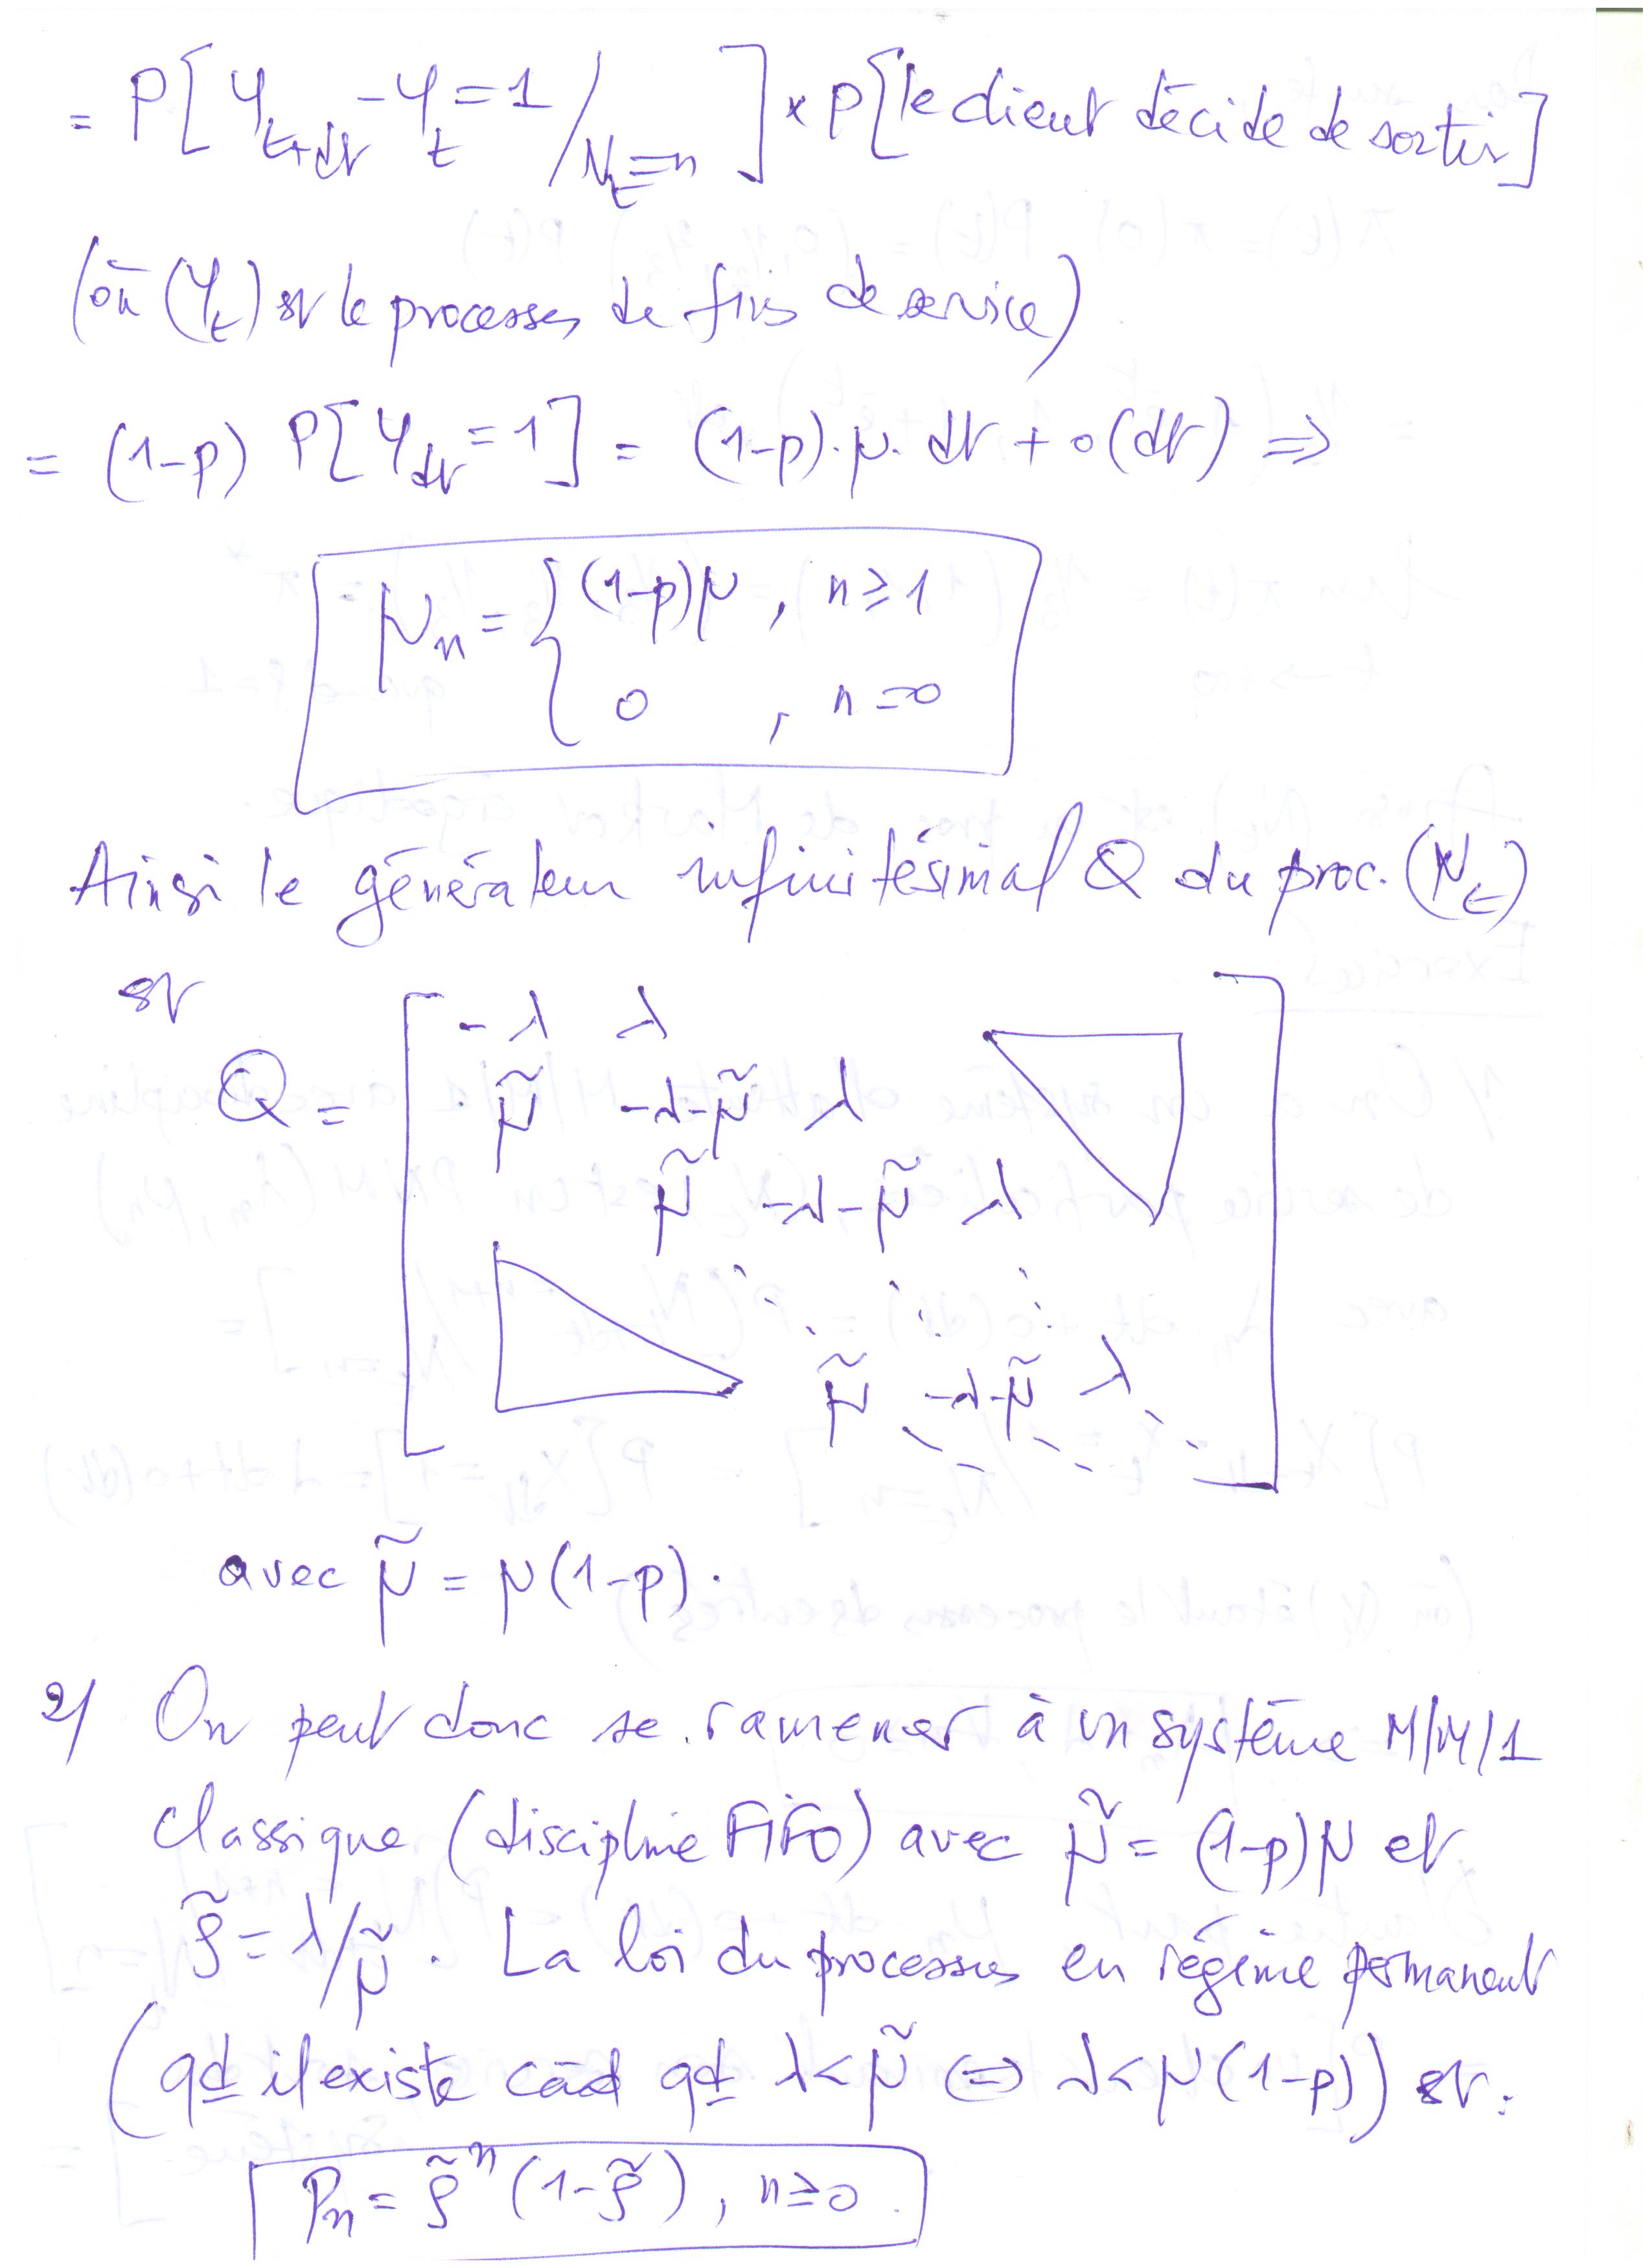 = P[Y_{t+dt} - Y_t = 1 / N_t = n] × P[le client décide de sortir]
(où (Y_t) est le processes de fins de service)
= (1-p) P[Y_{dt} = 1] = (1-p). μ. dt + o(dt) ⇒
μ_n = { (1-p)μ , n ≥ 1
0 , n = 0
Ainsi le générateur infinitésimal Q du proc. (N_t)
est
-λ λ
Q = μ̃ -λ-μ̃ λ
μ̃ -λ-μ̃ λ
μ̃ -λ-μ̃ λ
avec μ̃ = μ(1-p).
2/ On peut donc se ramener à un système M/M/1
classique (discipline FiFo) avec μ̃ = (1-p)μ et
ρ̃ = λ/μ̃. La loi du processus en régime permanent
(qd il existe càd qd λ < μ̃ ⇔ λ < μ(1-p)) est:
P_n = ρ̃^n (1-ρ̃), n ≥ 0.